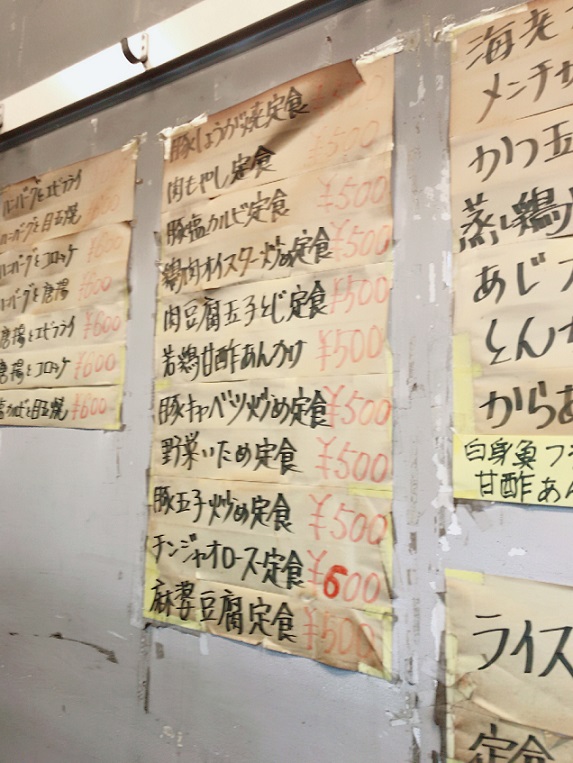 ハンバーグとエビフライ
ハンバーグと目玉焼 ¥600
ハンバーグとコロッケ ¥600
ハンバーグと唐揚 ¥600
唐揚とエビフライ ¥600
唐揚とコロッケ ¥600
と目玉焼 ¥600
豚しょうが焼定食
肉もやし定食 ¥500
豚塩カルビ定食 ¥500
鶏肉オイスター炒め定食 ¥500
肉豆腐玉子とじ定食 ¥500
若鶏甘酢あんかけ ¥500
豚キャベツ炒め定食 ¥500
野菜いため定食 ¥500
豚玉子炒め定食 ¥500
チンジャオロース定食 ¥600
麻婆豆腐定食 ¥500
海老
メンチ
かつ玉
蒸し鶏
あじフ
とんか
からあ
白身魚フ
甘酢あん
ライス
定食